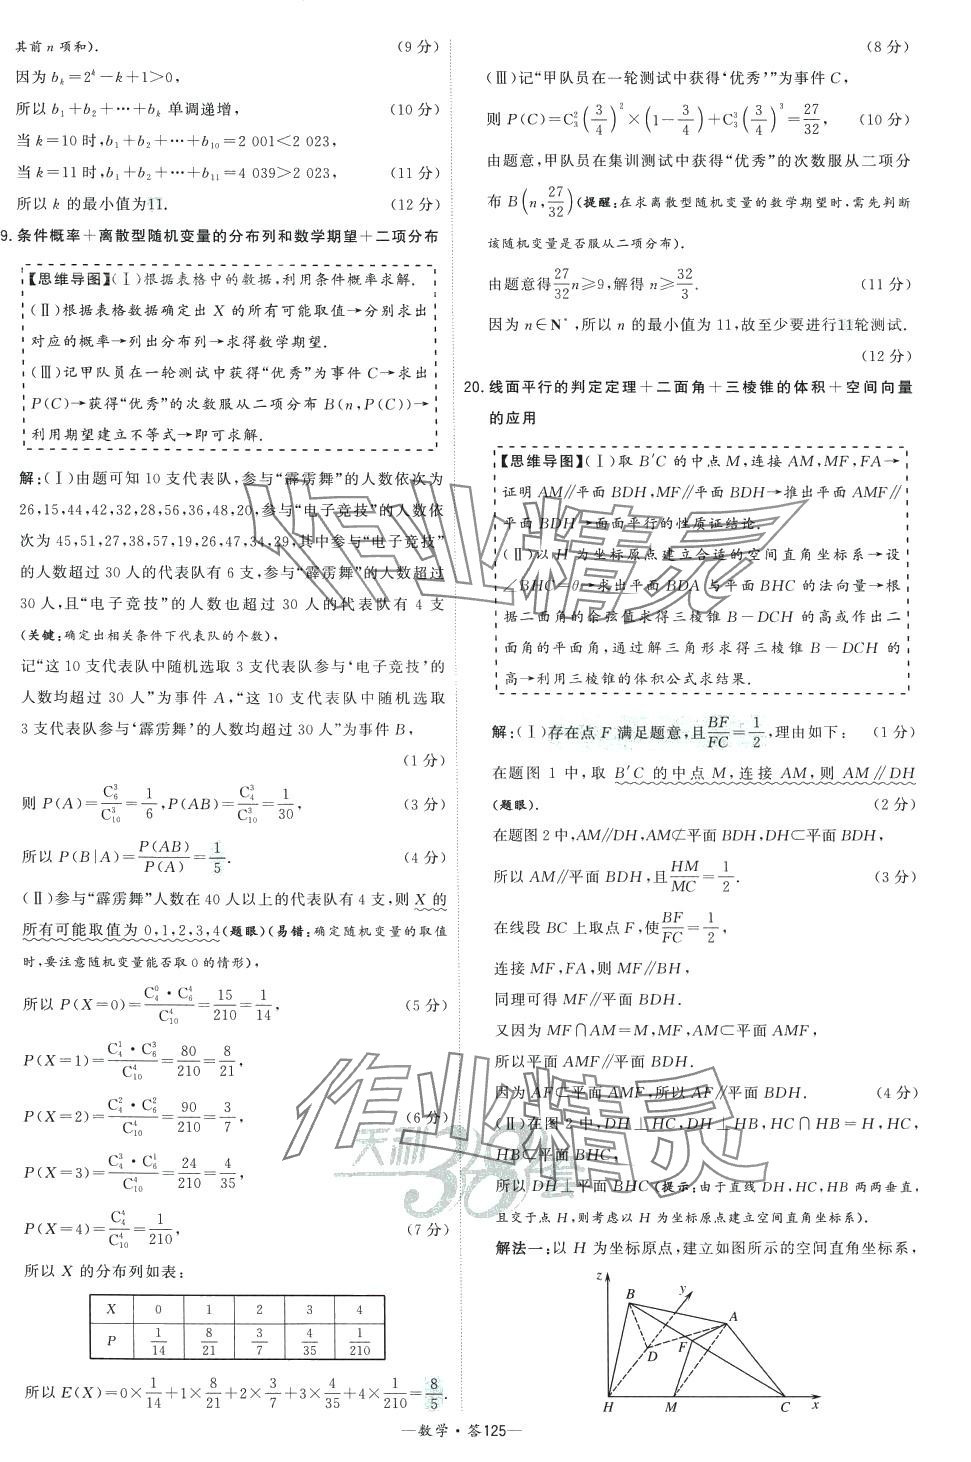 其前 n 项和). (9 分)
因为 b_k=2^k-k+1>0,
所以 b_1+b_2+…+b_k 单调递增, (10 分)
当 k=10 时,b_1+b_2+…+b_10=2 001<2 023,
当 k=11 时,b_1+b_2+…+b_11=4 039>2 023, (11 分)
所以 k 的最小值为11. (12 分)
9. 条件概率+离散型随机变量的分布列和数学期望+二项分布
【思维导图】(Ⅰ)根据表格中的数据,利用条件概率求解.
(Ⅱ)根据表格数据确定出 X 的所有可能取值→分别求出
对应的概率→列出分布列→求得数学期望.
(Ⅲ)记甲队员在一轮测试中获得“优秀”为事件 C→求出
P(C)→获得“优秀”的次数服从二项分布 B(n,P(C))→
利用期望建立不等式→即可求解.
解:(Ⅰ)由题可知 10 支代表队,参与“霹雳舞”的人数依次为
26,15,44,42,32,28,56,36,48,20,参与“电子竞技”的人数依
次为 45,51,27,38,57,19,26,47,34,29,其中参与“电子竞技”
的人数超过 30 人的代表队有 6 支,参与“霹雳舞”的人数超过
30 人,且“电子竞技”的人数也超过 30 人的代表队有 4 支
(关键:确定出相关条件下代表队的个数),
记“这 10 支代表队中随机选取 3 支代表队参与‘电子竞技’的
人数均超过 30 人”为事件 A,“这 10 支代表队中随机选取
3 支代表队参与‘霹雳舞’的人数均超过 30 人”为事件 B,
(1 分)
则 P(A)=C_6^3/C_10^3=1/6,P(AB)=C_4^3/C_10^3=1/30, (3 分)
所以 P(B|A)=P(AB)/P(A)=1/5. (4 分)
(Ⅱ)参与“霹雳舞”人数在 40 人以上的代表队有 4 支,则 X 的
所有可能取值为 0,1,2,3,4(题眼)(易错:确定随机变量的取值
时,要注意随机变量能否取 0 的情形),
所以 P(X=0)=C_4^0·C_6^4/C_10^4=15/210=1/14, (5 分)
P(X=1)=C_4^1·C_6^3/C_10^4=80/210=8/21,
P(X=2)=C_4^2·C_6^2/C_10^4=90/210=3/7, (6 分)
P(X=3)=C_4^3·C_6^1/C_10^4=24/210=4/35,
P(X=4)=C_4^4/C_10^4=1/210, (7 分)
所以 X 的分布列如表:
X 0 1 2 3 4
P 1/14 8/21 3/7 4/35 1/210
所以 E(X)=0×1/14+1×8/21+2×3/7+3×4/35+4×1/210=8/5.
(8 分)
(Ⅲ)记“甲队员在一轮测试中获得‘优秀’”为事件 C,
则 P(C)=C_3^2(3/4)^2×(1-3/4)+C_3^3(3/4)^3=27/32, (10 分)
由题意,甲队员在集训测试中获得“优秀”的次数服从二项分
布 B(n,27/32)(提醒:在求离散型随机变量的数学期望时,需先判断
该随机变量是否服从二项分布).
由题意得27/32n≥9,解得 n≥32/3. (11 分)
因为 n∈N*,所以 n 的最小值为 11,故至少要进行11轮测试.
(12 分)
20. 线面平行的判定定理+二面角+三棱锥的体积+空间向量
的应用
【思维导图】(Ⅰ)取 B′C 的中点 M,连接 AM,MF,FA→
证明 AM∥平面 BDH,MF∥平面 BDH→推出平面 AMF∥
平面 BDH→面面平行的性质证结论.
(Ⅱ)以 H 为坐标原点建立合适的空间直角坐标系→设
∠BHC=θ→求出平面 BDA 与平面 BHC 的法向量→根
据二面角的余弦值求得三棱锥 B-DCH 的高或作出二
面角的平面角,通过解三角形求得三棱锥 B-DCH 的
高→利用三棱锥的体积公式求结果.
解:(Ⅰ)存在点 F 满足题意,且BF/FC=1/2,理由如下: (1 分)
在题图 1 中,取 B′C 的中点 M,连接 AM,则 AM∥DH
(题眼). (2 分)
在题图 2 中,AM∥DH,AM⊄平面 BDH,DH⊂平面 BDH,
所以 AM∥平面 BDH,且HM/MC=1/2. (3 分)
在线段 BC 上取点 F,使BF/FC=1/2,
连接 MF,FA,则 MF∥BH,
同理可得 MF∥平面 BDH.
又因为 MF∩AM=M,MF,AM⊂平面 AMF,
所以平面 AMF∥平面 BDH.
因为 AF⊂平面 AMF,所以 AF∥平面 BDH. (4 分)
(Ⅱ)在图 2 中,DH⊥HC,DH⊥HB,HC∩HB=H,HC,
HB⊂平面 BHC,
所以 DH⊥平面 BHC(提示:由于直线 DH,HC,HB 两两垂直,
且交于点 H,则考虑以 H 为坐标原点建立空间直角坐标系).
解法一:以 H 为坐标原点,建立如图所示的空间直角坐标系,
z
B
y
A
F
D
H
M
C
x
—数学·答125—
作业精灵
作业精灵
天利38套